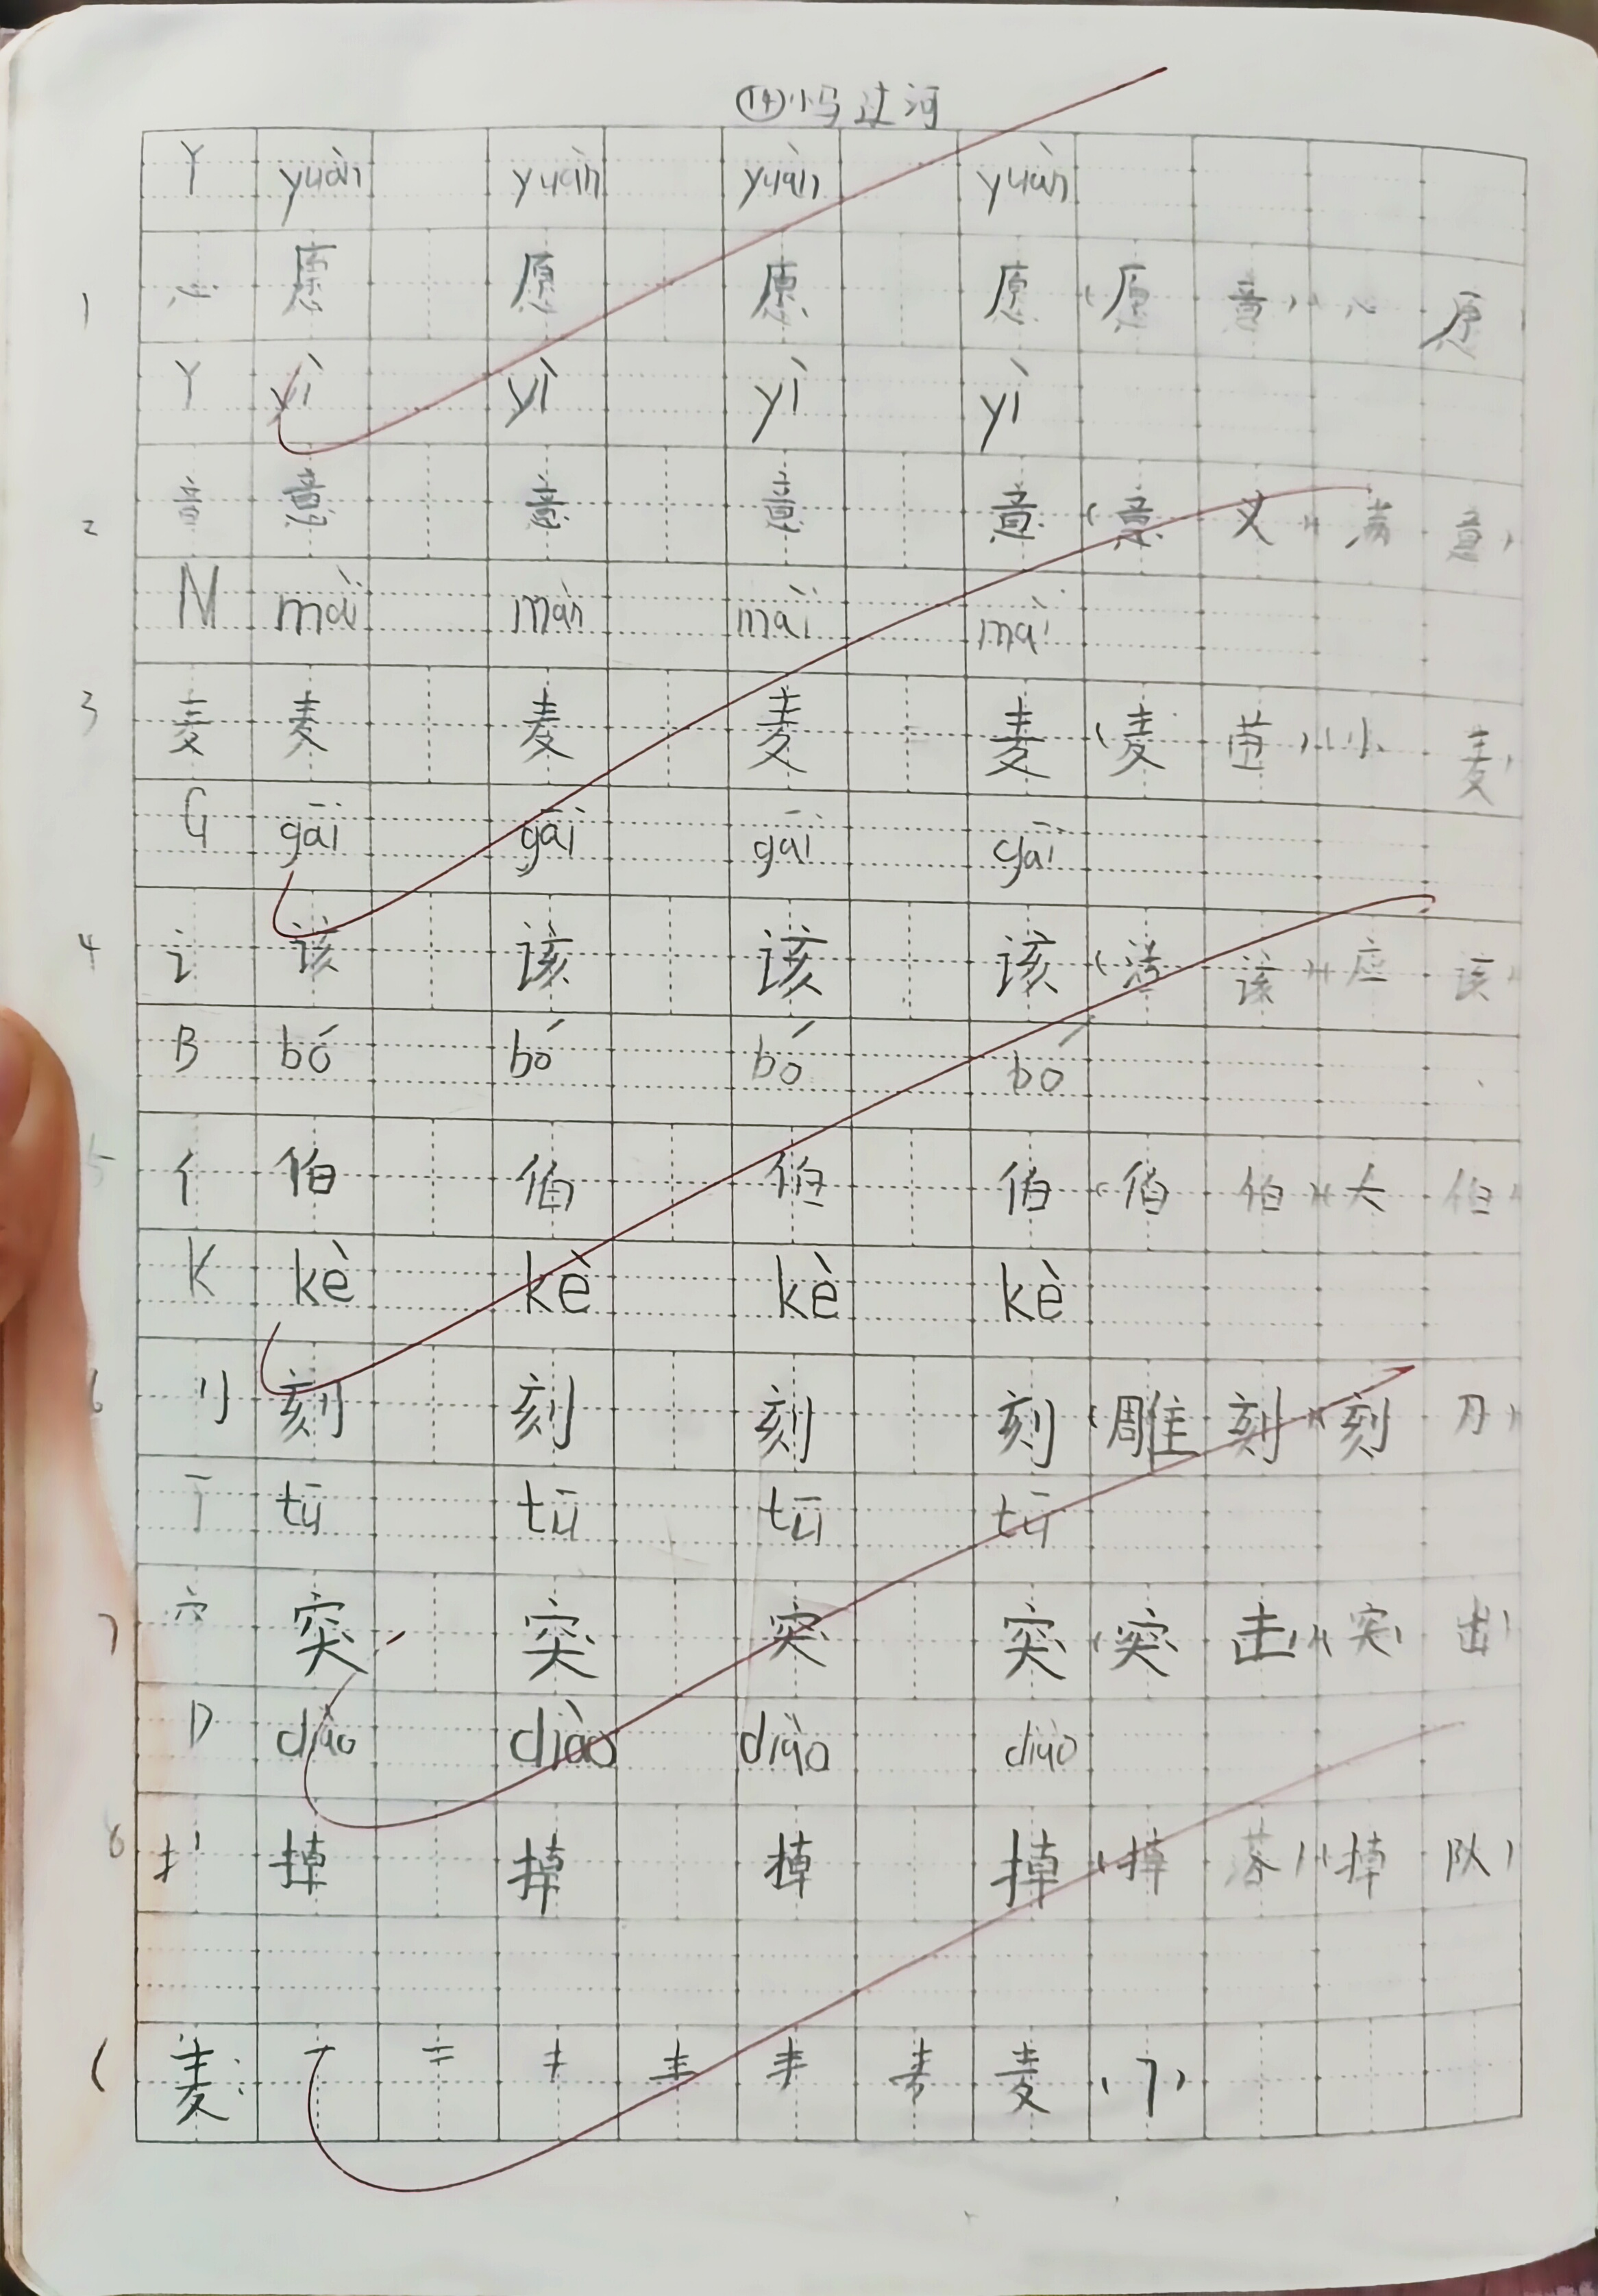 ⑭小马过河
Y yuàn yuàn yuàn yuàn
1 心 愿 愿 愿 愿（愿意）（心愿
Y yì yì yì yì
2 音 意 意 意 意（意义）（满意）
M mài màn mài mài
3 麦 麦 麦 麦 麦（麦苗）（小麦）
G gāi gāi gāi gāi
4 讠 该 该 该 该（活该）（应该）
B bó bó bó bó
5 亻 伯 伯 伯 伯（伯伯）（大伯）
K kè kè kè kè
6 刂 刻 刻 刻 刻（雕刻）（刻刀）
T tū tū tū tū
7 穴 突 突 突 突（突击）（突出）
D diào diào diào diào
8 扌 掉 掉 掉 掉（掉落）（掉队）
麦：一 二 キ 主 麦（7）